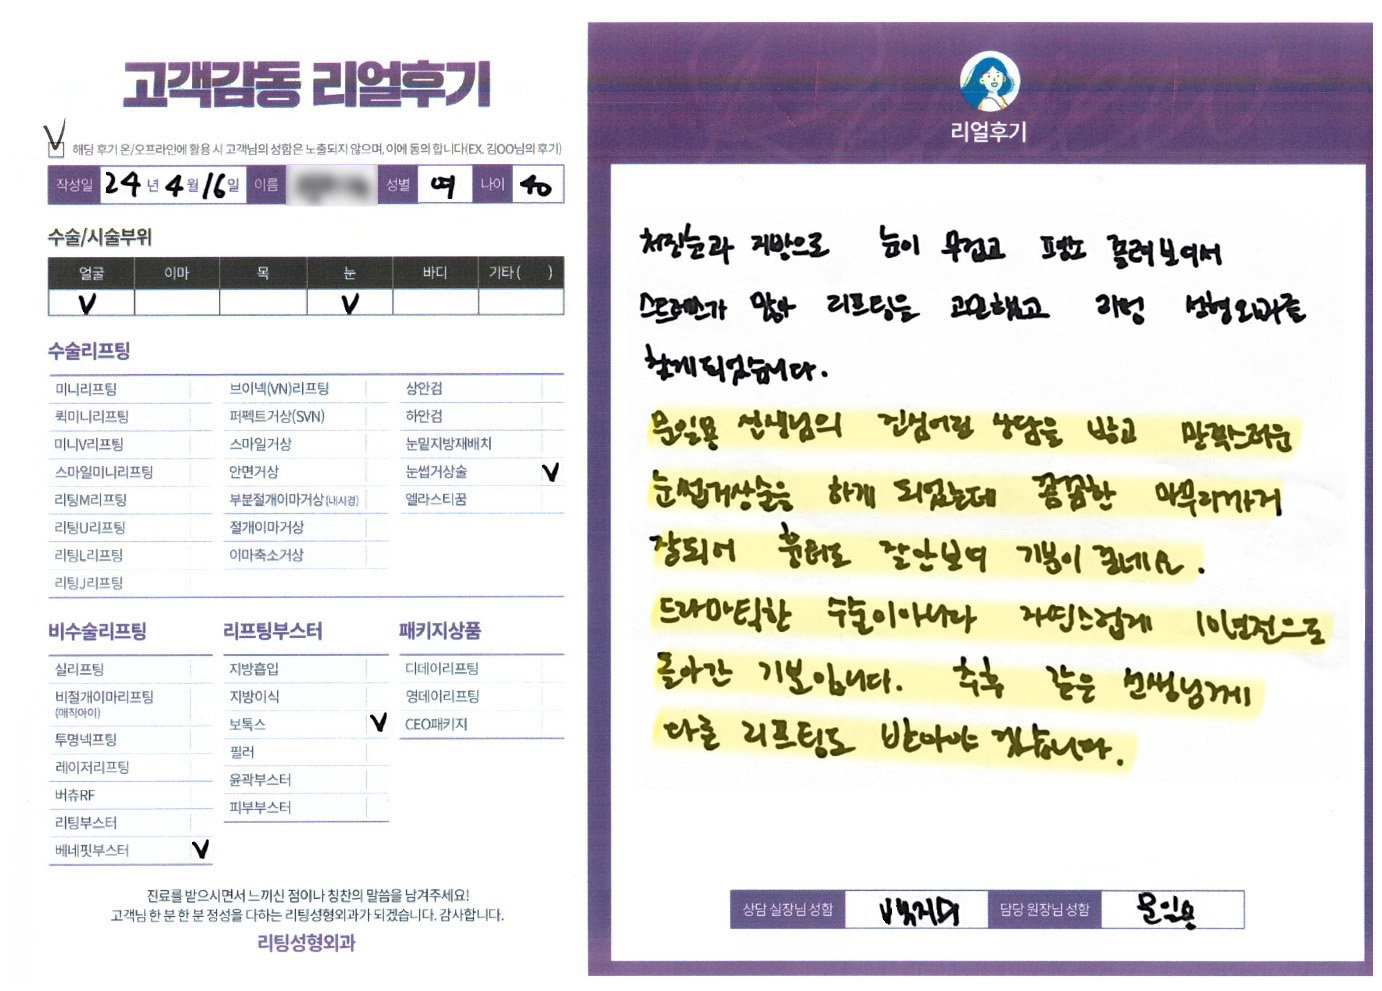 고객감동 리얼후기
V 해당 후기 온/오프라인에 활용 시 고객님의 성함은 노출되지 않으며, 이에 동의 합니다(EX. 김OO님의 후기)
작성일 24 년 4 월 16 일 이름 성별 여 나이 40
수술/시술부위
얼굴 이마 목 눈 바디 기타 ( )
V V
수술리프팅
미니리프팅 브이넥(VN)리프팅 상안검
퀵미니리프팅 퍼펙트거상(SVN) 하안검
미니V리프팅 스마일거상 눈밑지방재배치
스마일미니리프팅 안면거상 눈썹거상술 V
리팅M리프팅 부분절개이마거상(내시경) 엘라스티꿈
리팅U리프팅 절개이마거상
리팅L리프팅 이마축소거상
리팅J리프팅
비수술리프팅 리프팅부스터 패키지상품
실리프팅 지방흡입 디데이리프팅
비절개이마리프팅 지방이식 영데이리프팅
(매직아이) 보톡스 V CEO패키지
투명넥프팅 필러
레이저리프팅 윤곽부스터
버츄RF 피부부스터
리팅부스터
베네핏부스터 V
진료를 받으시면서 느끼신 점이나 칭찬의 말씀을 남겨주세요!
고객님 한 분 한 분 정성을 다하는 리팅성형외과가 되겠습니다. 감사합니다.
리팅성형외과
리얼후기
처진눈과 지방으로 눈이 무겁고 평소 졸려보여서
스트레스가 많아 리프팅을 고민했고 리팅 성형외과를
찾게되었습니다.
문일용 선생님의 진심어린 상담을 받고 만족스러운
눈썹거상술을 하게 되었는데 꼼꼼한 마무리까지
잘되어 흉터도 잘안보여 기분이 좋네요.
드라마틱한 수술이아니라 자연스럽게 10년전으로
돌아간 기분입니다. 추후 같은 선생님께
다른 리프팅도 받아야 겠습니다.
상담 실장님 성함 담당 원장님 성함 문일용